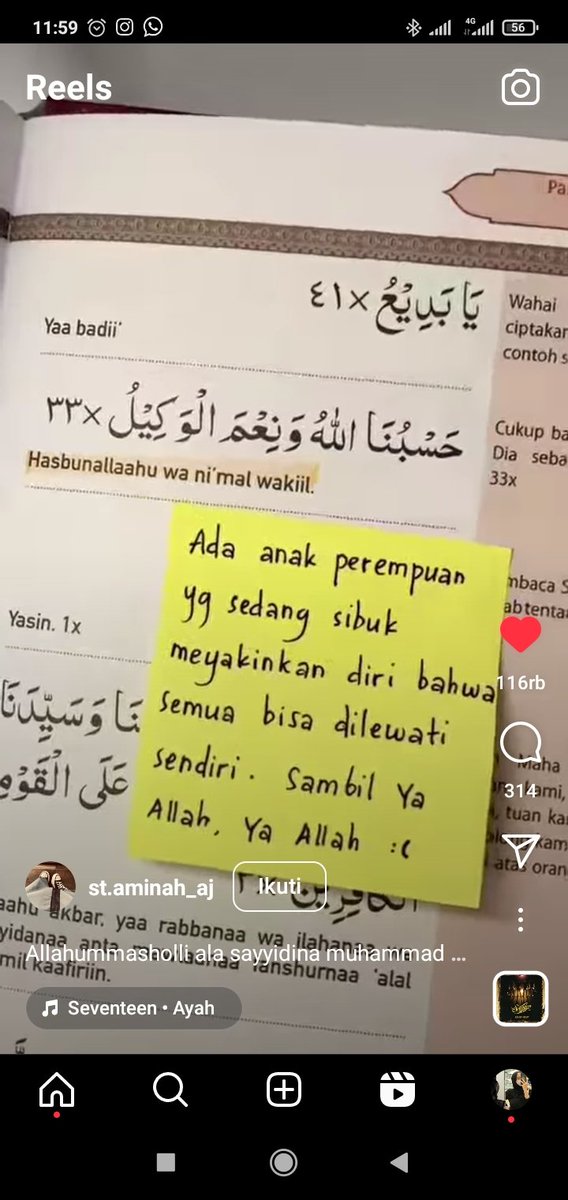 11:59
4G
56
Reels
Pa
يَا بَدِيْعُ ×٤١
Wahai
Yaa badii'
ciptakan
contoh s
حَسْبُنَا اللهُ وَنِعْمَ الْوَكِيْلُ ×٣٣
Cukup ba
Dia seba
33x
Hasbunallaahu wa ni'mal wakiil.
Ada anak perempuan
yg sedang sibuk
meyakinkan diri bahwa
semua bisa dilewati
sendiri. Sambil Ya
Allah, Ya Allah :(
mbaca S
116rb
Yasin. 1x
نَا وَسَيِّدَنَا
عَلَى الْقَوْمِ
314
Maha
ami,
tuan ka
atas oran
الْكَافِرِيْنَ
st.aminah_aj
Ikuti
aahu akbar, yaa rabbanaa wa ilahanaa
Allahummasholli ala sayyidina muhammad ...
yidanaa anta fanshurnaa 'alal
mil kaafiriin.
Seventeen • Ayah